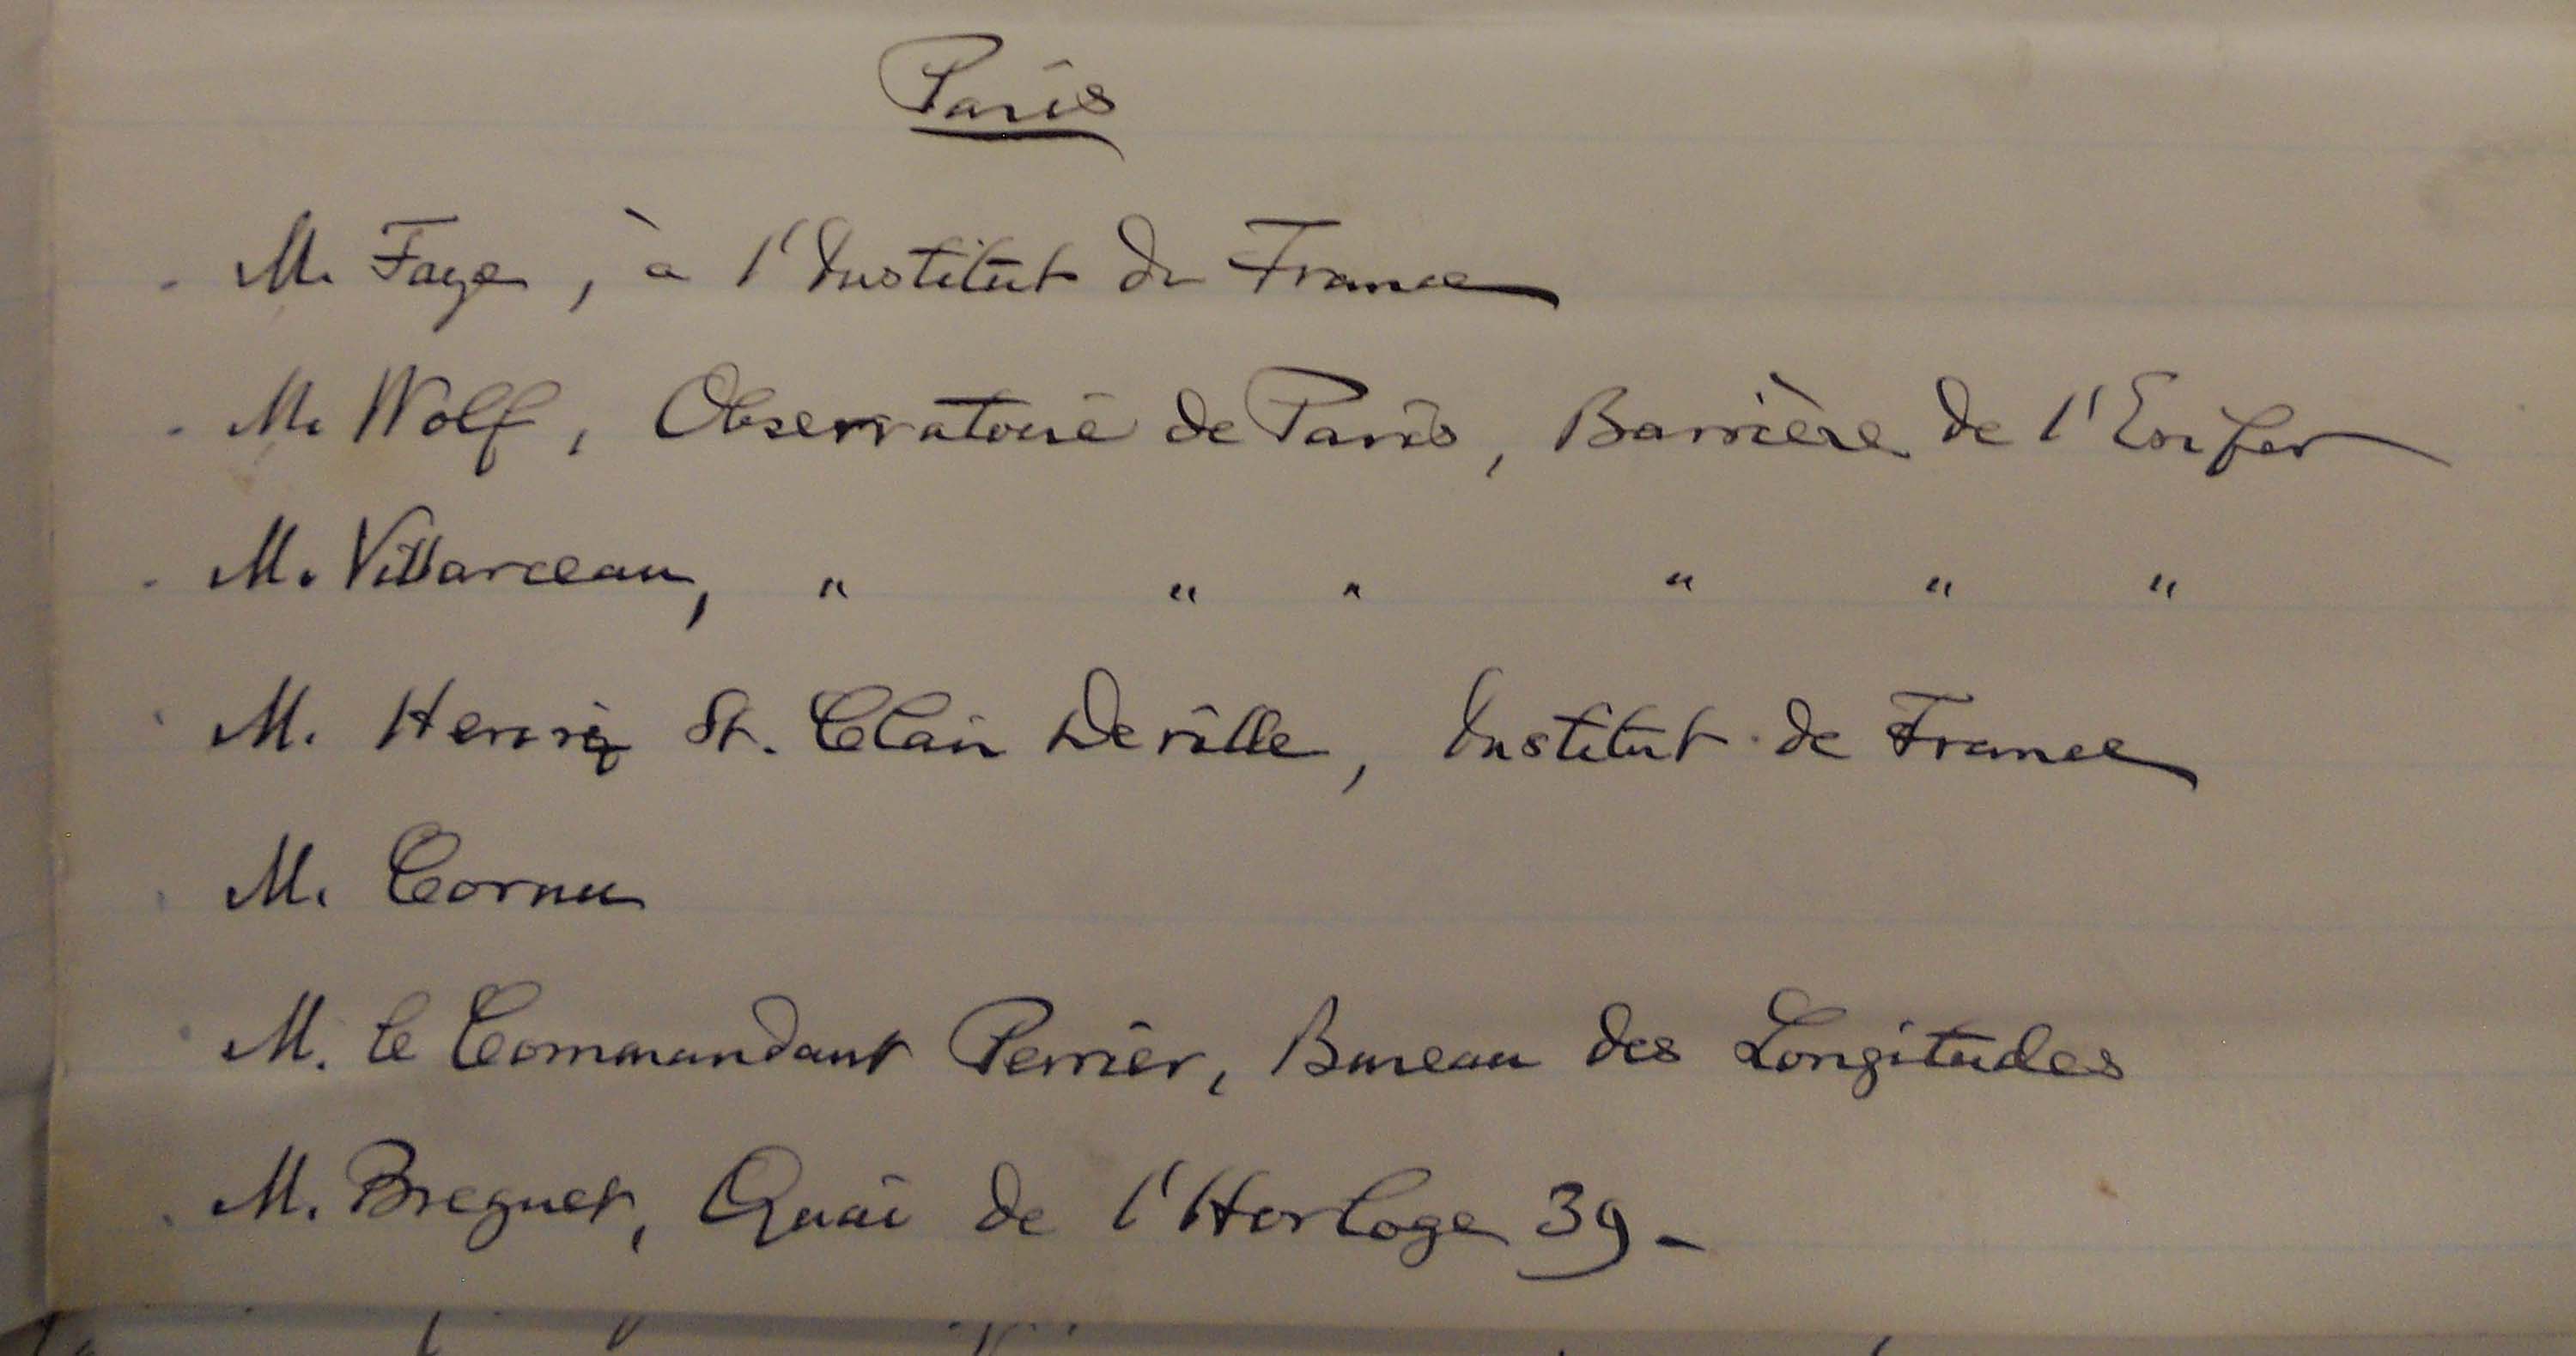 Paris
M. Faye, à l'Institut de France
M. Wolf, Observatoire de Paris, Barrière de l'Enfer
M. Villarceau, " " " " " "
M. Henri St. Clair Deville, Institut de France
M. Cornu
M. le Commandant Perrier, Bureau des Longitudes
M. Breguet, Quai de l'Horloge 39 -